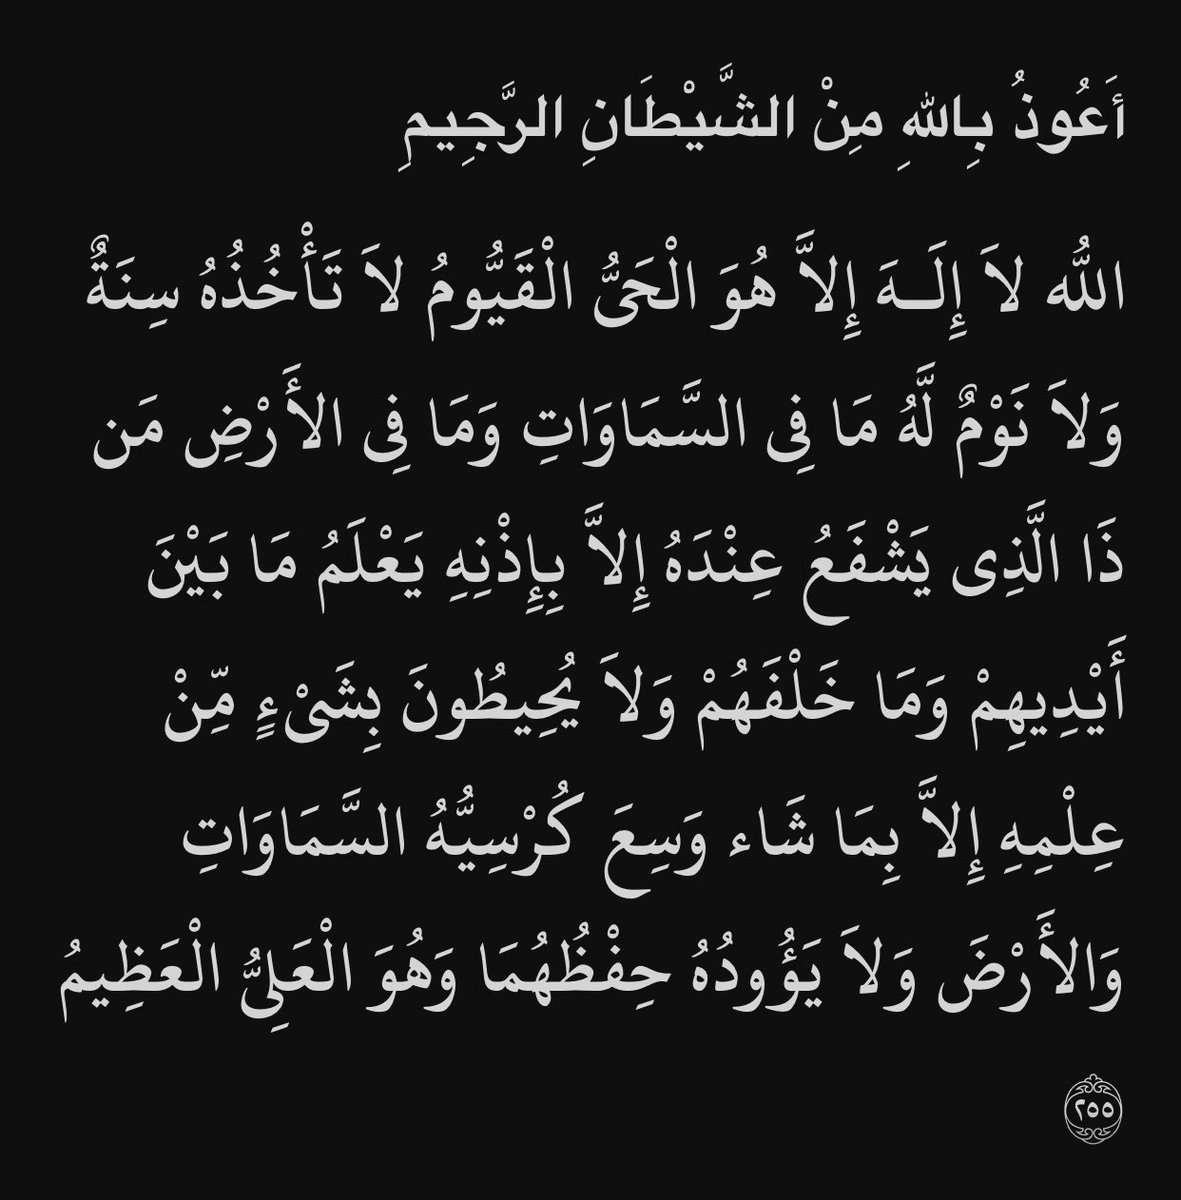 أَعُوذُ بِاللهِ مِنْ الشَّيْطَانِ الرَّجِيمِ
اللهُ لاَ إِلَـهَ إِلاَّ هُوَ الْحَىُّ الْقَيُّومُ لاَ تَأْخُذُهُ سِنَةٌ
وَلاَ نَوْمٌ لَّهُ مَا فِى السَّمَاوَاتِ وَمَا فِى الأَرْضِ مَن
ذَا الَّذِى يَشْفَعُ عِنْدَهُ إِلاَّ بِإِذْنِهِ يَعْلَمُ مَا بَيْنَ
أَيْدِيهِمْ وَمَا خَلْفَهُمْ وَلاَ يُحِيطُونَ بِشَىْءٍ مِّنْ
عِلْمِهِ إِلاَّ بِمَا شَاء وَسِعَ كُرْسِيُّهُ السَّمَاوَاتِ
وَالأَرْضَ وَلاَ يَؤُودُهُ حِفْظُهُمَا وَهُوَ الْعَلِىُّ الْعَظِيمُ
٢٥٥